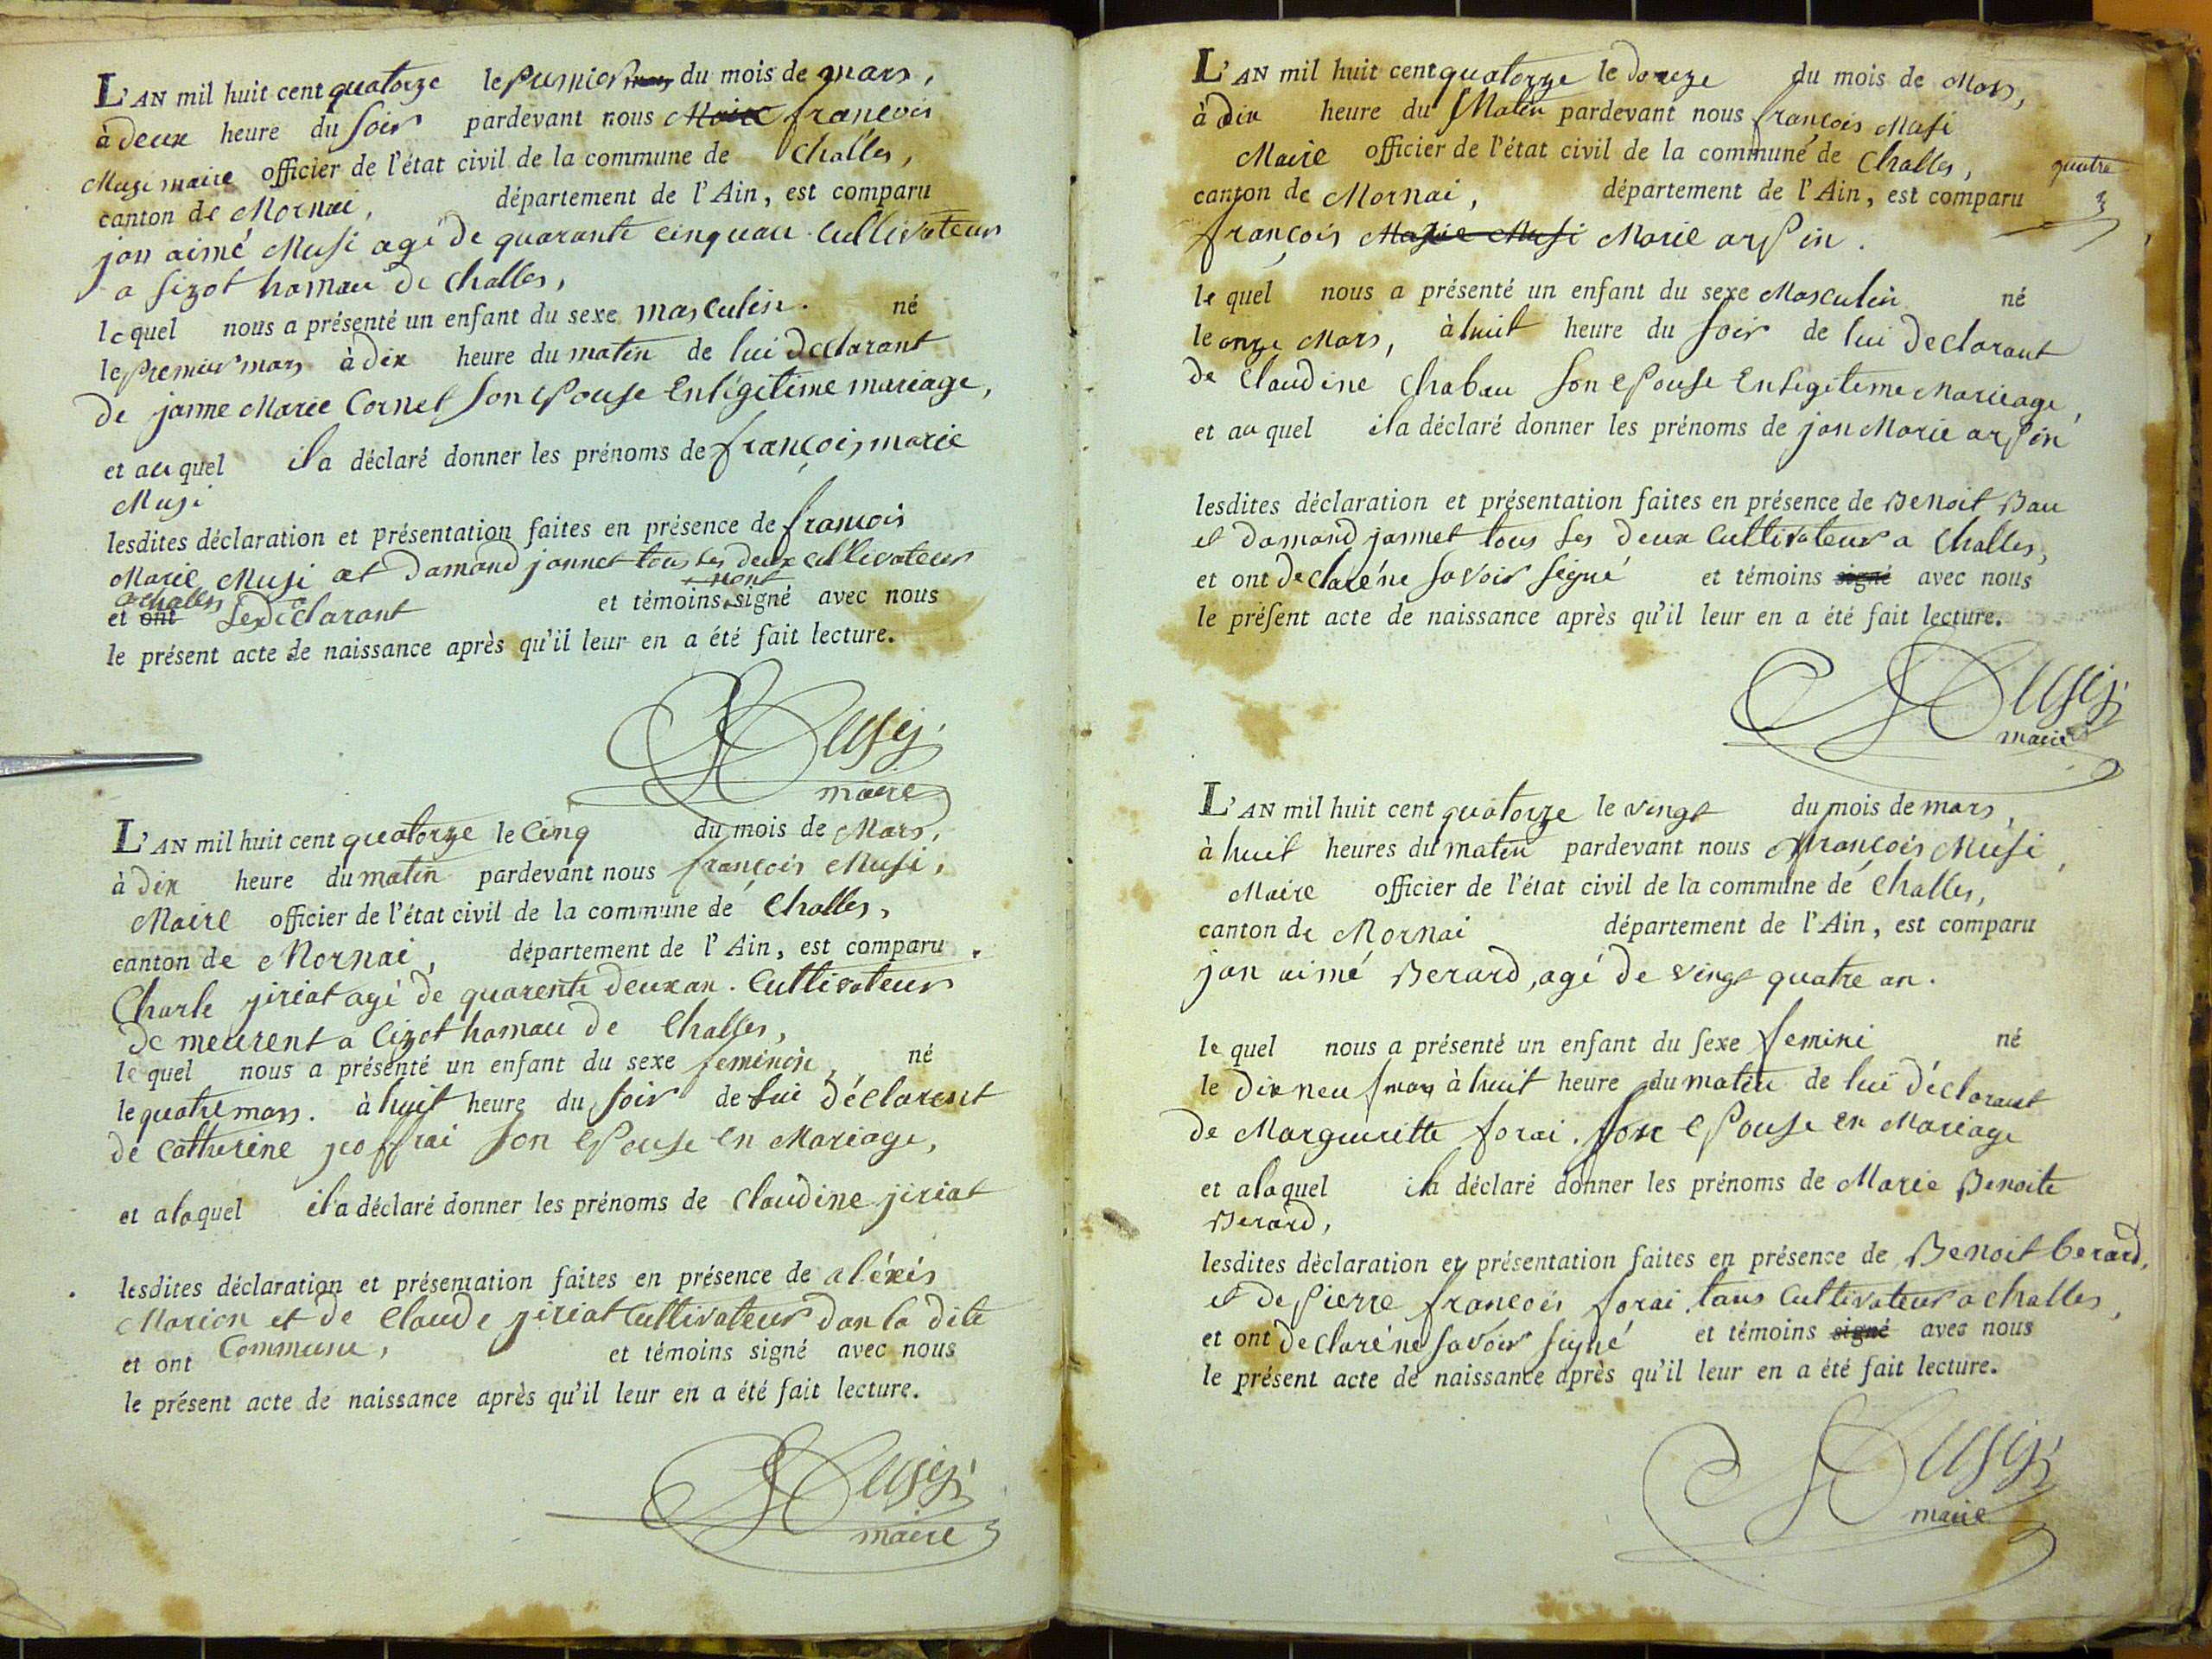 L'AN mil huit cent quatorze le premier du mois de mars,
à deux heure du soir pardevant nous Maire françois
Musi maire officier de l'état civil de la commune de Challes,
canton de Mornai, département de l'Ain, est comparu
jan aimé Musi agé de quarante cinq an cultivateur
a sizot hamau de challes,
lequel nous a présenté un enfant du sexe masculin. né
le premier mars à dix heure du matin de lui declarant
de janne Marie Cornet son epouse en légitime mariage,
et au quel il a déclaré donner les prénoms de françois marie
Musi
lesdites déclaration et présentation faites en présence de francois
Marie Musi et damand jannet tous les deux cultivateur
a challes
nont
et ont les déclarant et témoins signé avec nous
le présent acte de naissance après qu'il leur en a été fait lecture.
Musy
maire
L'AN mil huit cent quatorze le Cinq du mois de Mars,
à dix heure du matin pardevant nous françois Musi,
Maire officier de l'état civil de la commune de Challes,
canton de Mornai, département de l'Ain, est comparu.
Charle jiriat agé de quarente deux an. Cultivateur
de meurent a Cizot hamau de Challes,
le quel nous a présenté un enfant du sexe feminin, né
le quatre mars. à huit heure du soir de lui déclarent
de Catherine jeoffrai son epouse en Mariage,
et a la quel il a déclaré donner les prénoms de Claudine jiriat
lesdites déclaration et présentation faites en présence de aléxis
Marion et de Claude jiriat Cultivateur dan la dite
et ont Commune, et témoins signé avec nous
le présent acte de naissance après qu'il leur en a été fait lecture.
Musy
maire
L'AN mil huit cent quatorze le douze du mois de Mars,
à dix heure du Matin pardevant nous françois Musi
Maire officier de l'état civil de la commune de Challes,
quatre
canton de Mornai, département de l'Ain, est comparu
françois Marie Musi Marie arpin.
le quel nous a présenté un enfant du sexe Masculin né
le onze Mars, à huit heure du soir de lui declarant
de Claudine Chabau son epouse En Legitime Mariage,
et au quel il a déclaré donner les prénoms de jan Marie arpin
lesdites déclaration et présentation faites en présence de Benoit Bau
et damand jannet tous les deux Cultivateur a Challes,
et ont declaré ne savoir signé et témoins signé avec nous
le présent acte de naissance après qu'il leur en a été fait lecture.
Musy
maire
L'AN mil huit cent quatorze le vingt du mois de mars,
à huit heures du matin pardevant nous françois Musi,
Maire officier de l'état civil de la commune de Challes,
canton de Mornai département de l'Ain, est comparu
jan aimé Berard, agé de vingt quatre an.
le quel nous a présenté un enfant du sexe femini né
le dix neuf mars à huit heure du matin de lui déclarant
de Margueritte forai. son epouse en Mariage
et a la quel il a déclaré donner les prénoms de Marie Benoite
Berard,
lesdites dèclaration et présentation faites en présence de Benoit berard,
et de pierre francois forai tous Cultivateur a challes,
et ont declaré ne savoir signé et témoins signé avec nous
le présent acte de naissance après qu'il leur en a été fait lecture.
Musy
maire